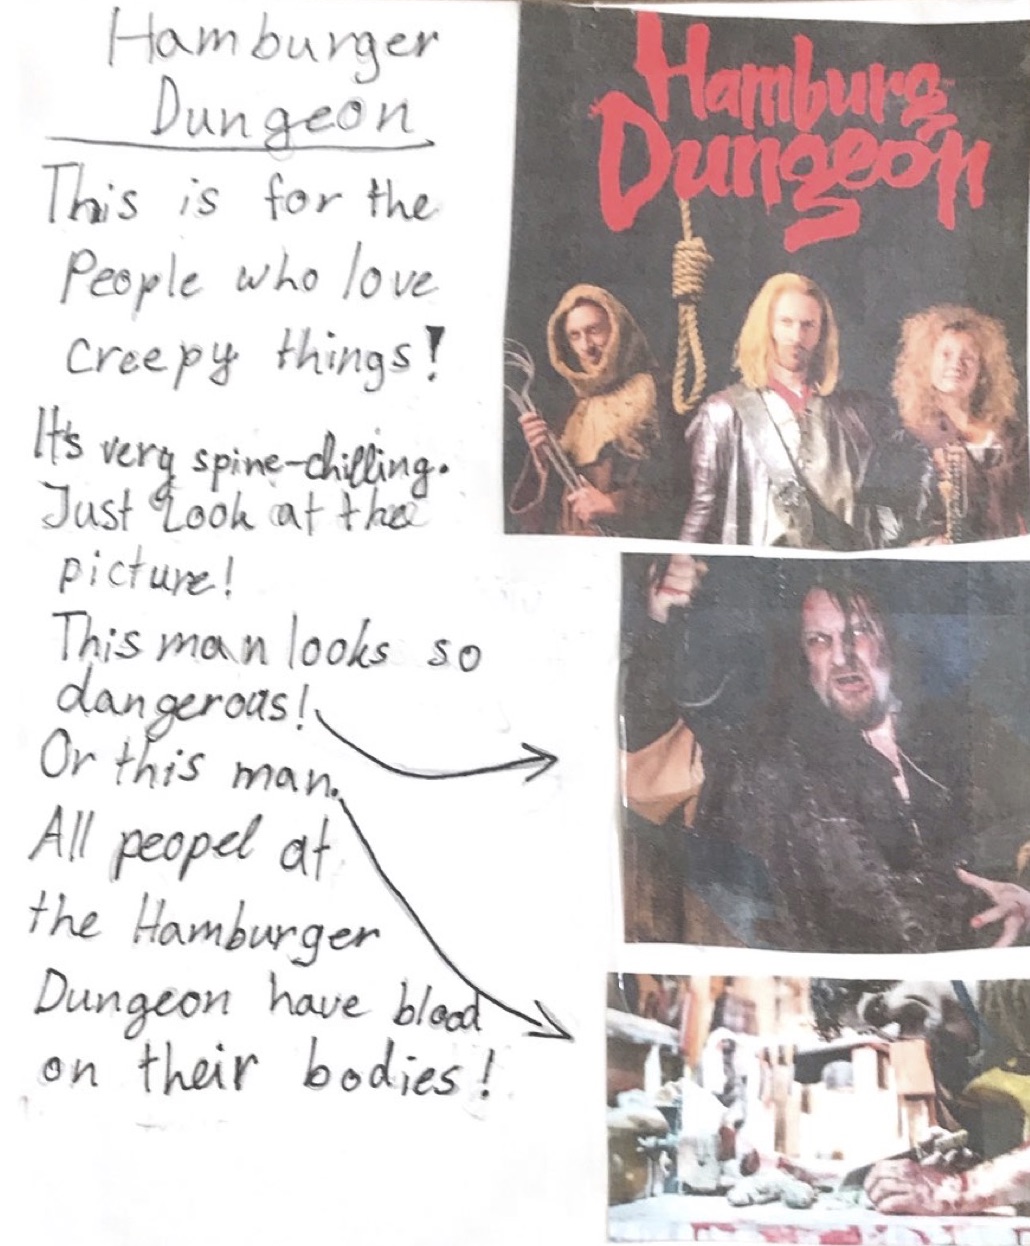 Hamburger
Dungeon
This is for the
People who love
creepy things!
It's very spine-chilling.
Just Look at the
picture!
This man looks so
dangerous!
Or this man.
All peopel at
the Hamburger
Dungeon have blood
on their bodies!
Hamburg
Dungeon